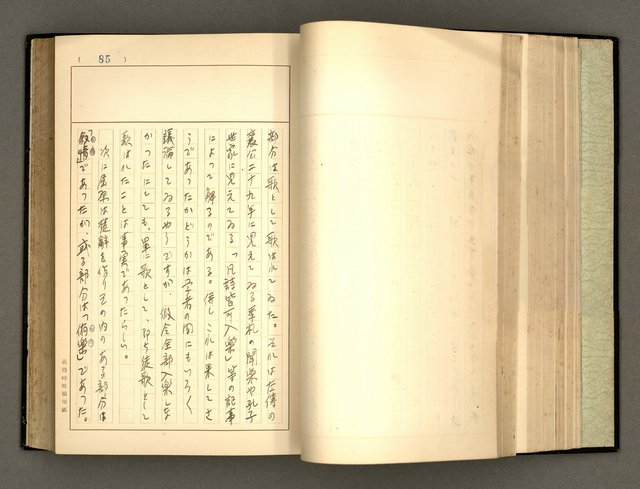 ( 85 )
部分は歌として歌はれてゐた。それは左傳の
襄公二十九年に見えてゐる季札の聞樂や孔子
世家に見えてゐる「凡詩皆可入樂」等の記事
によつて解るのである。併しこれは果してさ
うであつたかどうかは学者の間にもいろく
議論してゐるやうですが、假令全部入樂しな
かつたにしても、單に歌として、即ち徒歌として
歌はれたことは事実であつたらしい。
次に屈原は楚辞を作りその内のある部分は
「敍情」であつたが、或る部分は「俗樂」であつた。
黃得時原稿用紙